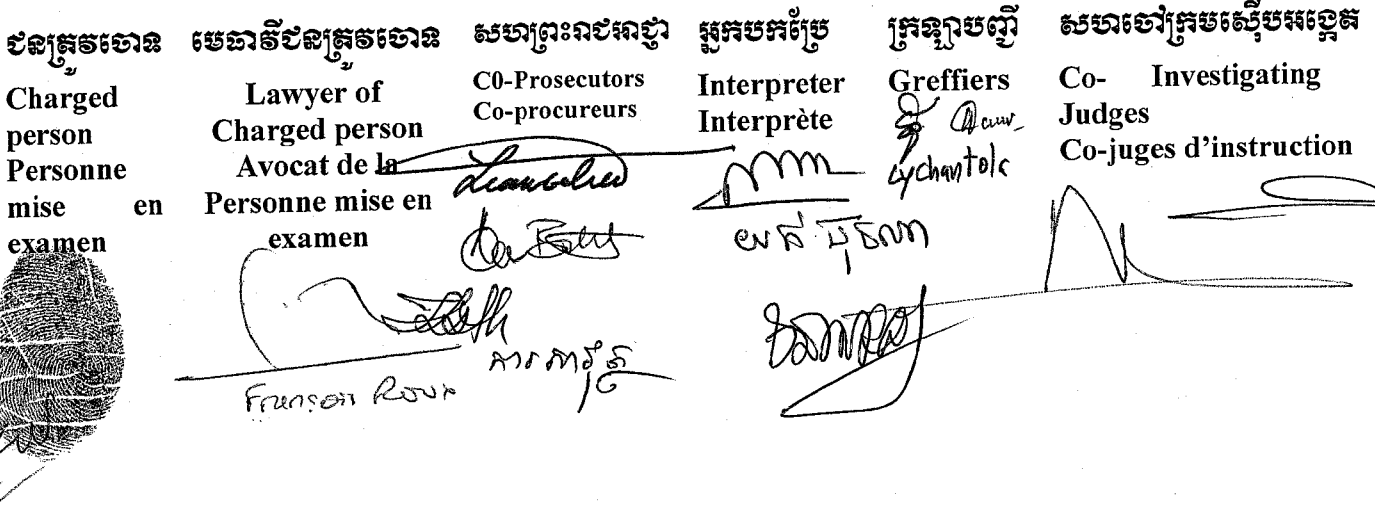 ជនត្រូវចោទ
Charged
person
Personne
mise en
examen
មេធាវីជនត្រូវចោទ
Lawyer of
Charged person
Avocat de la
Personne mise en
examen
François Roux
សហព្រះរាជអាជ្ញា
C0-Prosecutors
Co-procureurs
អ្នកបកប្រែ
Interpreter
Interprète
ក្រឡាបញ្ជី
Greffiers
សហចៅក្រមស៊ើបអង្កេត
Co- Investigating
Judges
Co-juges d'instruction